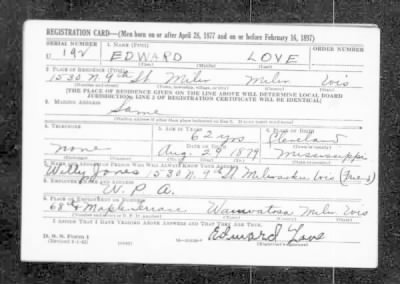 REGISTRATION CARD—(Men born on or after April 28, 1877 and on or before February 16, 1897)
SERIAL NUMBER 1. NAME (Print) ORDER NUMBER
U 192 EDWARD LOVE
(First) (Middle) (Last)
2. PLACE OF RESIDENCE (Print)
1530 N. 9th St Milw Milw Wis
(Number and street) (Town, township, village, or city) (County) (State)
[THE PLACE OF RESIDENCE GIVEN ON THE LINE ABOVE WILL DETERMINE LOCAL BOARD
JURISDICTION; LINE 2 OF REGISTRATION CERTIFICATE WILL BE IDENTICAL]
3. MAILING ADDRESS
Same
[Mailing address if other than place indicated on line 2. If same insert word same]
4. TELEPHONE 5. AGE IN YEARS 6. PLACE OF BIRTH
62 yrs Cleveland
DATE OF BIRTH (Town or county)
none Aug. 29 1879 Mississippi
7. NAME AND ADDRESS OF PERSON WHO WILL ALWAYS KNOW YOUR ADDRESS
Willy Jones 1530 N. 9th St Milwaukee, Wis (Friend)
8. EMPLOYER'S NAME AND ADDRESS
W. P. A.
9. PLACE OF EMPLOYMENT OR BUSINESS
68th & Maple Terrace Wauwatosa Milw Wis
(Number and street or R. F. D. number) (Town) (County) (State)
I AFFIRM THAT I HAVE VERIFIED ABOVE ANSWERS AND THAT THEY ARE TRUE.
D. S. S. Form 1 Edward Love
(Revised 4-1-42) (Registrant's signature)